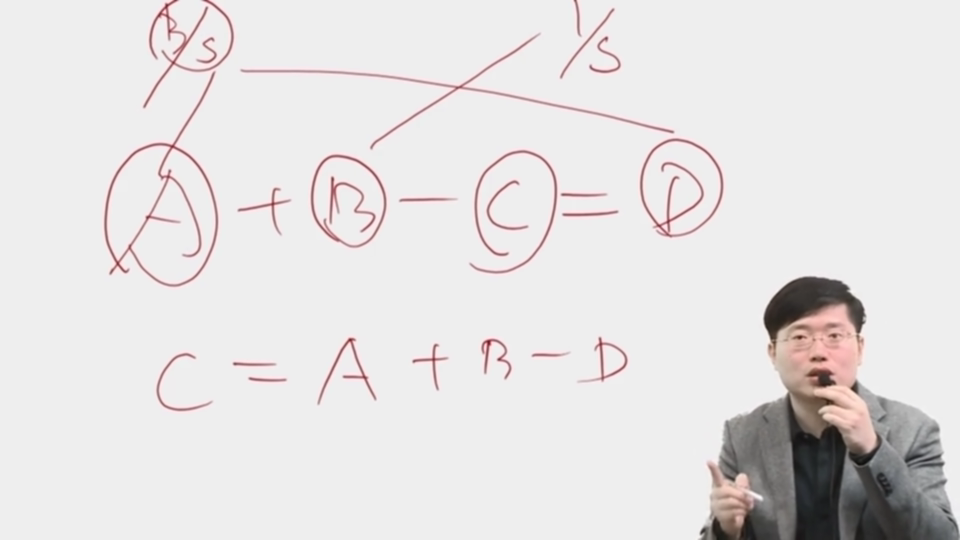 B/S I/S
A + B - C = D
C = A + B - D